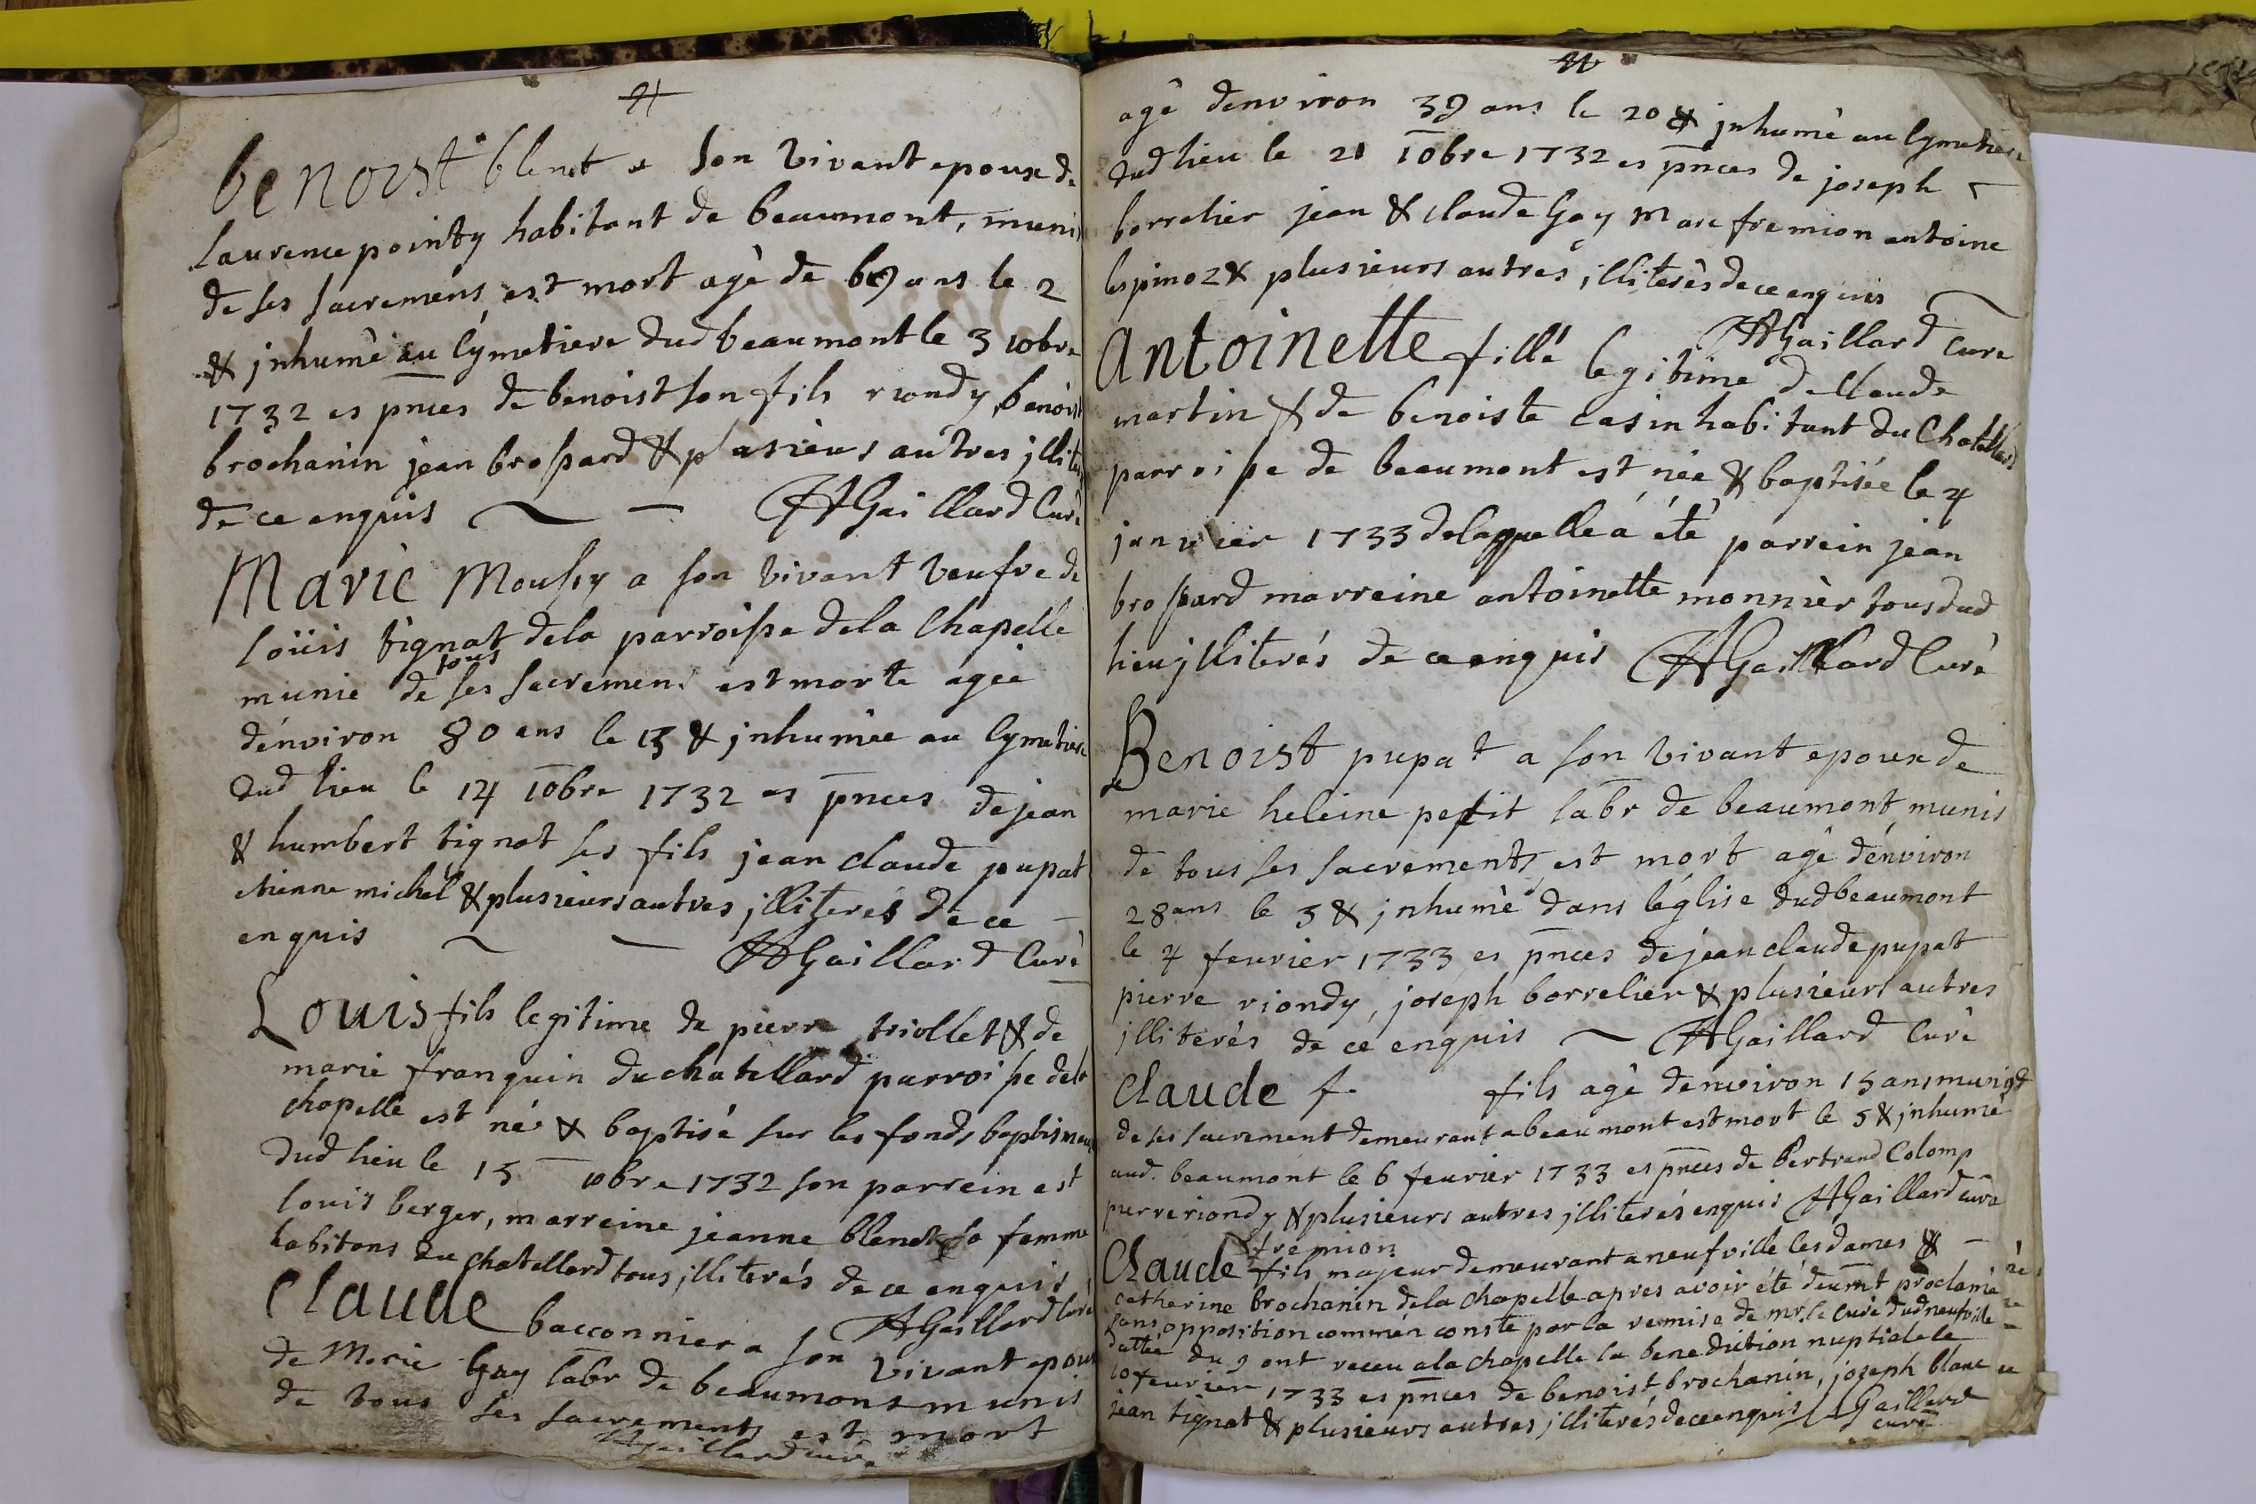 benoist blenet a son vivant epoux de
laurence pointy habitant de beaumont, muni
de ses sacremens, est mort agè de 69 ans le 2
& jnhumè au Cymetiere dud beaumont le 3 10bre
1732 es pnces de benoist son fils riondy, benoist
brochanin jean brossard & plusieurs autres jllite
de ce enquis ~ — HGaillard Curè
Marie Moussy a son vivant veufve de
Loüis tignat dela parroisse dela Chapelle
tous
munie de ses sacremens est morte agèe
d'environ 80 ans le 13 & jnhumèe au Cymetiere
dud lieu le 14 10bre 1732 es pnces de jean
& humbert tignat ses fils jean claude pupat
etienne michel & plusieurs autres jlliterés de ce —
enquis ~ — HGaillard Curè
Louis fils legitime de pierre triollet & de
marie franquin du chatellard parroisse dela
chapelle est né & baptisé sur les fonds baptismaux
dud lieu le 15 10bre 1732 son parrein est
louis berger, marreine jeanne blenet sa femme
habitans du chatellard tous jlliterés de ce enquis
HGaillard Curè
Claude bacconnier a son vivant epoux
de Marie Gay labr de beaumont munis
de tous ses sacrements est mort
HGaillard curè
agè denviron 39 ans le 20 & jnhumè au Cymetiere
dud lieu le 21 10bre 1732 es pnces de joseph
borrelier jean & claude Gay Marc fremion antoine
lespinoz & plusieurs autres jlliterès de ce enquis
HGaillard Curè
Antoinette fille legitime de Claude
martin & de benoiste cas inhabitant du Chatellard
parroisse de beaumont est née & baptisée le 4
janvier 1733 delaquelle a été parrein jean
brossard marreine antoinette monnièr tous dud
lieu jlliterés de ce enquis HGaillard Curè
Benoist pupat a son vivant epoux de
marie heleine petit labr de beaumont munis
de tous ses sacrements, est mort agè d'environ
28 ans le 3 & jnhumè dans l'église dud beaumont
le 4 feurier 1733 es pnces de jean claude pupat
pierre riondy, joseph borrelier & plusieurs autres
jlliterés de ce enquis ~ HGaillard Curè
Claude f. fils agè denviron 15 ans munis
de ses sacrement demeurant a beaumont est mort le 5 & jnhumè
aud. beaumont le 6 feurier 1733 es pnces de Bertrand Colomp
pierre riondy & plusieurs autres jlliterés enquis HGaillard curè
fremion
Claude fils majeur demeurant a neufville les dames & —
catherine brochanin dela chapelle apres avoir été deumt proclamé
sans opposition comm'en conste par la remise de mr. le Curé dud neufville
dattée du 9 ont receu a la chapelle la benediction nuptiale le
10 feurier 1733 es pnces de benoist brochanin, joseph blanc
jean tignat & plusieurs autres jlliterés de ce enquis Gaillard
curè